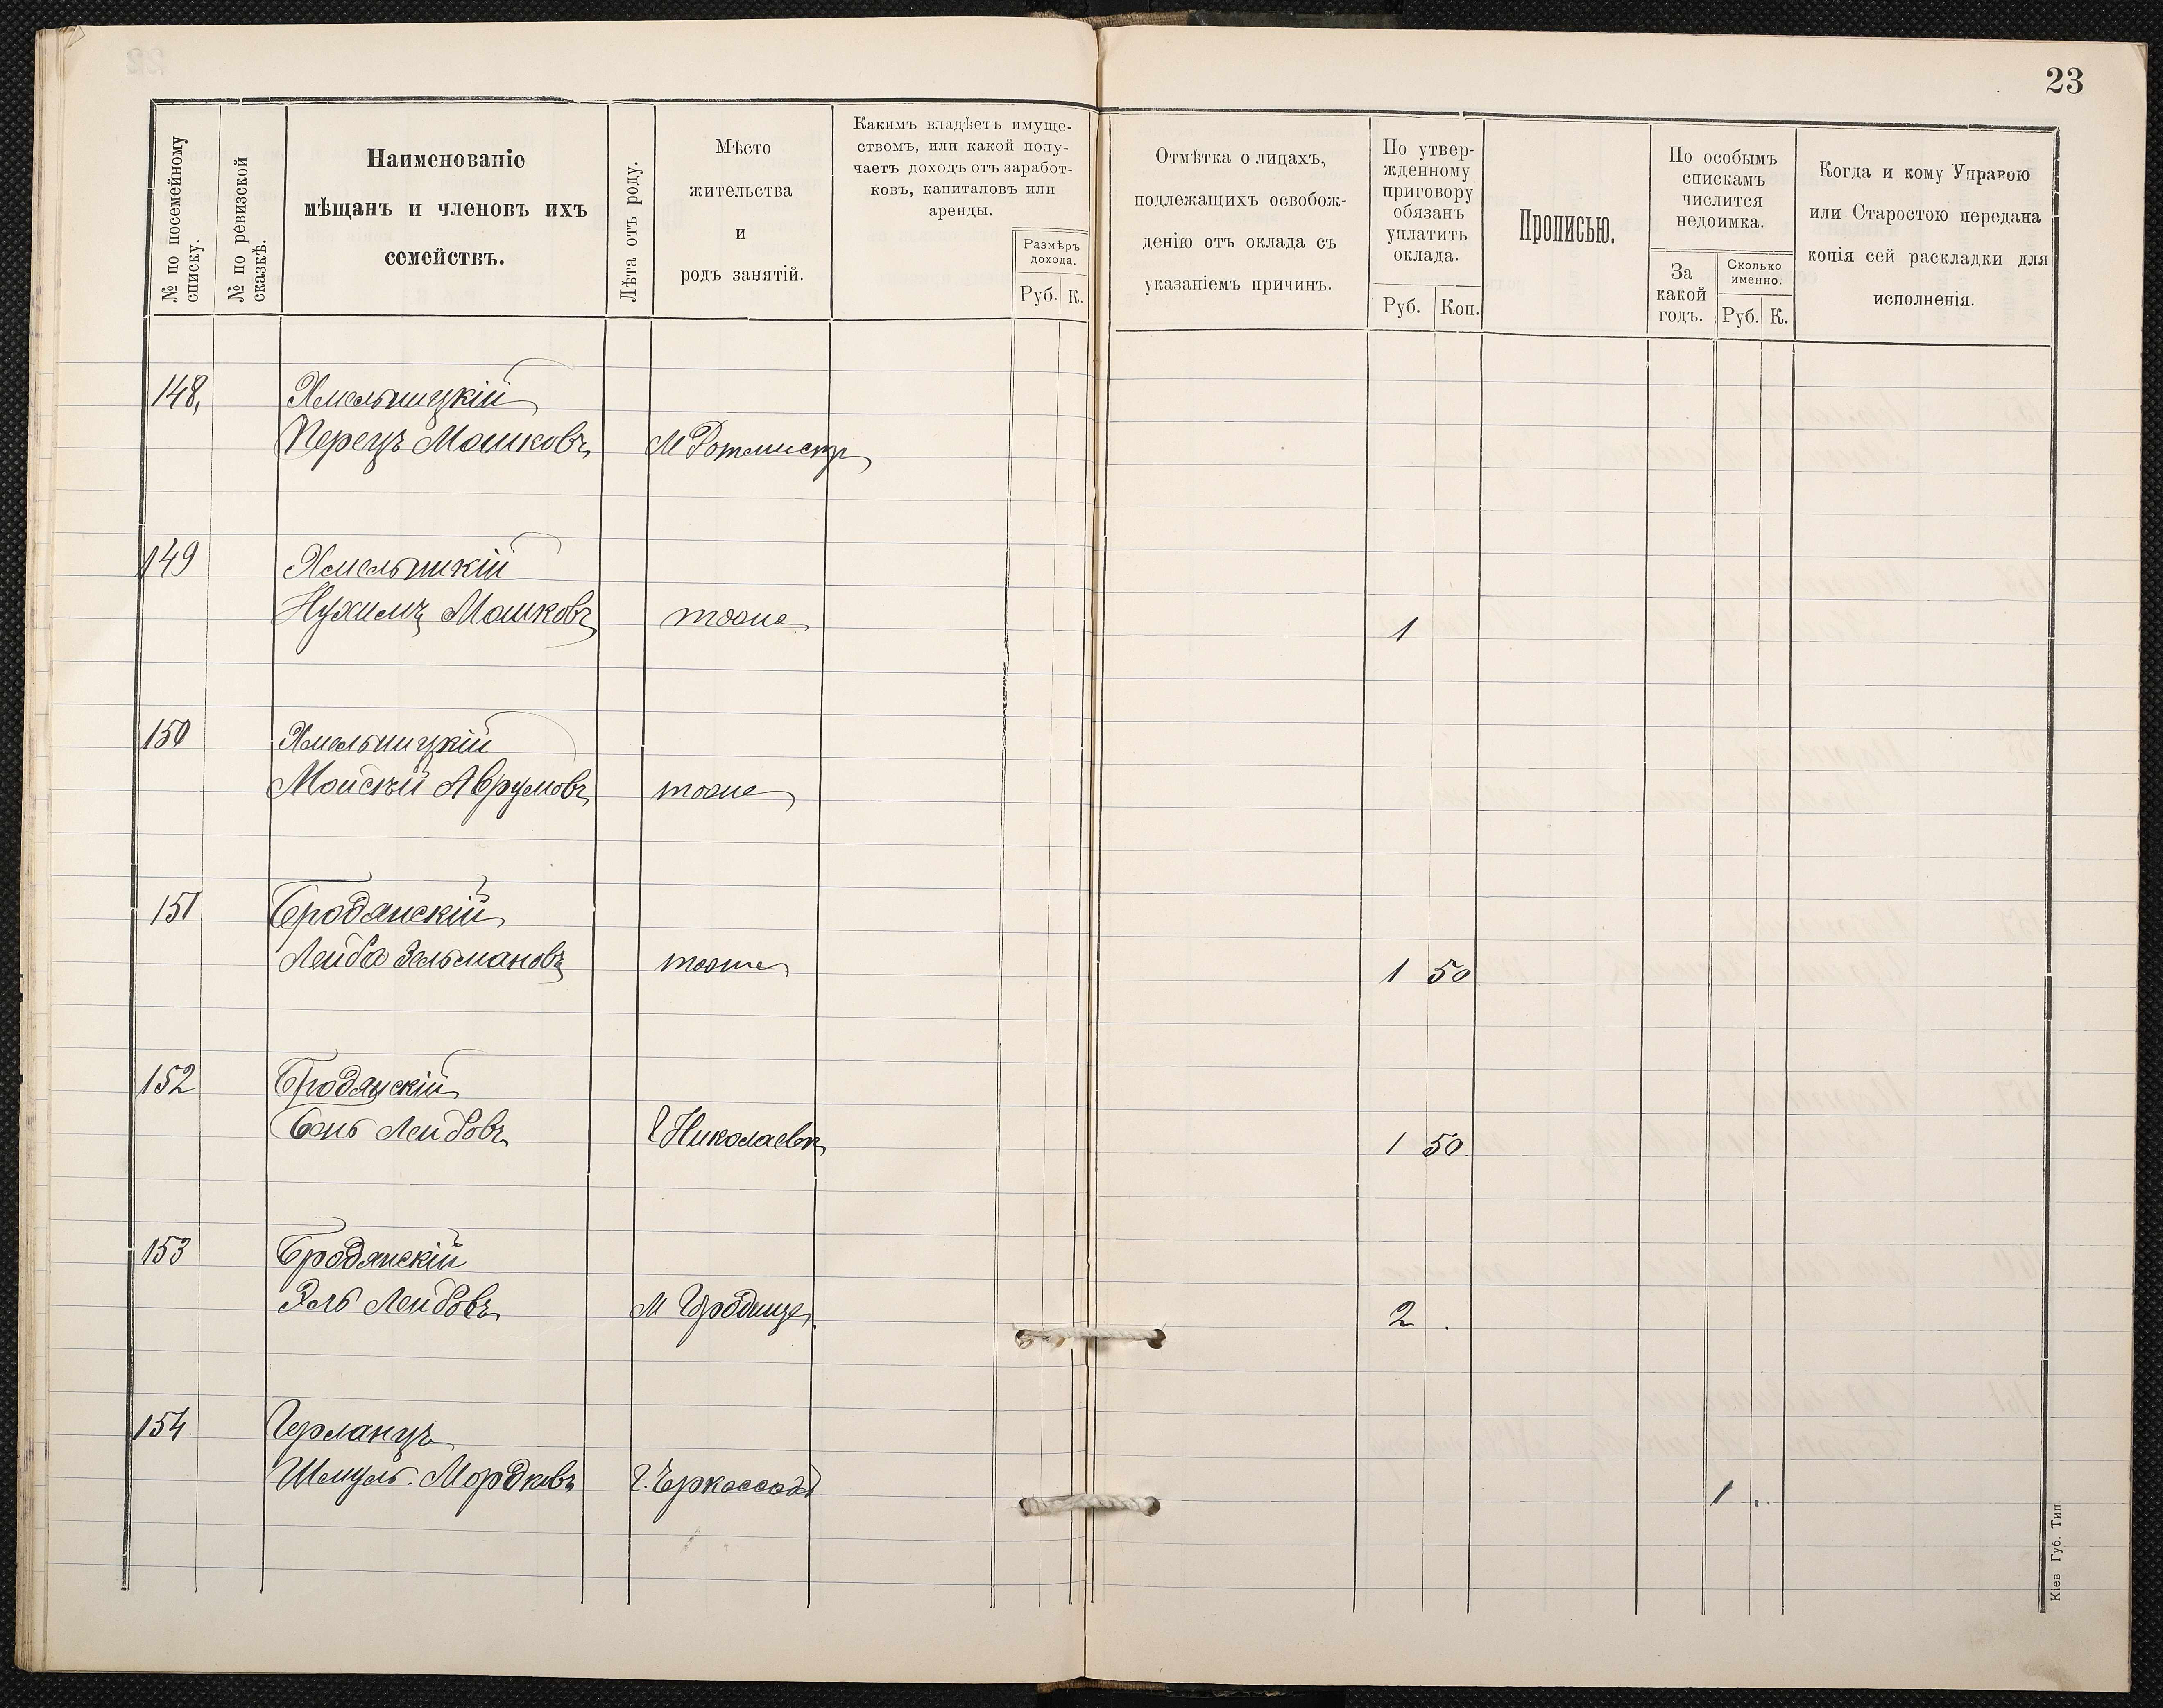 23
№ по посемейному списку.
№ по ревизской сказкѣ.
Наименованіе
мѣщанъ и членовъ ихъ
семействъ.
Лѣта отъ роду.
Мѣсто
жительства
и
родъ занятій.
Какимъ владѣетъ имуще-
ствомъ, или какой полу-
чаетъ доходъ отъ заработ-
ковъ, капиталовъ или
аренды.
Размѣръ
дохода.
Руб. К.
Отмѣтка о лицахъ,
подлежащихъ освобож-
денію отъ оклада съ
указаніемъ причинъ.
По утвер-
жденному
приговору
обязанъ
уплатить
оклада.
Руб. Коп.
Прописью.
По особымъ
спискамъ
числится
недоимка.
За
какой
годъ.
Сколько
именно.
Руб. К.
Когда и кому Управою
или Старостою передана
копія сей раскладки для
исполненія.
148, Хмельницкій
Перецъ Мошковъ М Ротмистр
149 Хмельникій
Нухимъ Мошковъ тоже 1
150 Хмельницкій
Мойсѣй Аврумовъ тоже
151 Бродянскій
Лейба Зельмановъ тоже 1 50
152 Бродянскій
Бень Лейбовъ г Николаевъ 1 50
153 Бродянскій
Зель Лейбовъ М Городище 2 .
154 Герланцъ
Шмуль Мордковъ Г. Черкассы 1 ..
Кіев Губ. Тип.